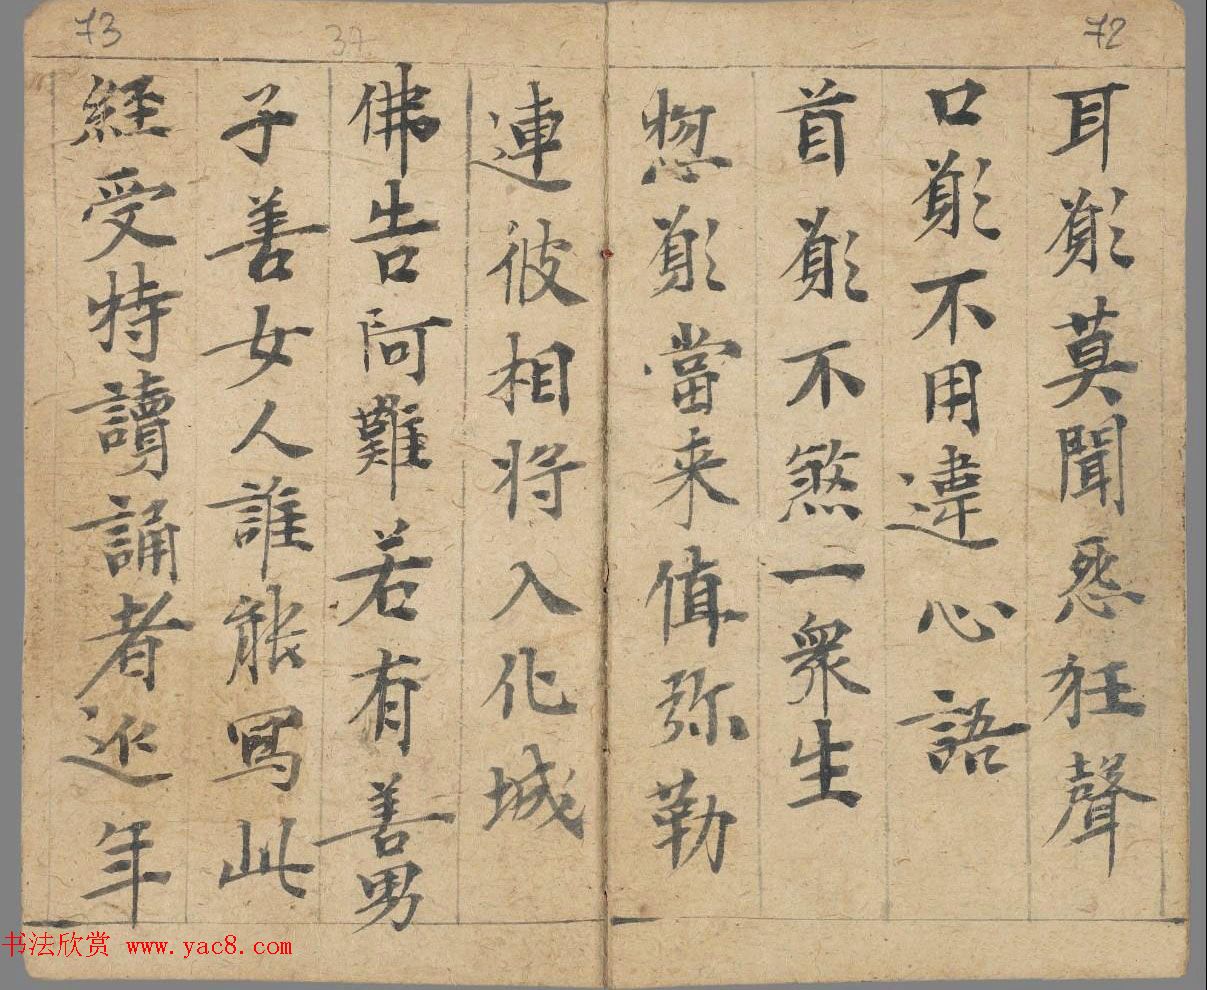 72
耳願莫聞惡狂聲
口願不用違心語
首願不煞一衆生
惣願當来值弥勒
73
37
連彼相将入化城
佛告阿難若有善男
子善女人誰能冩此
経受特讀誦者延年
书法欣赏 www.yac8.com